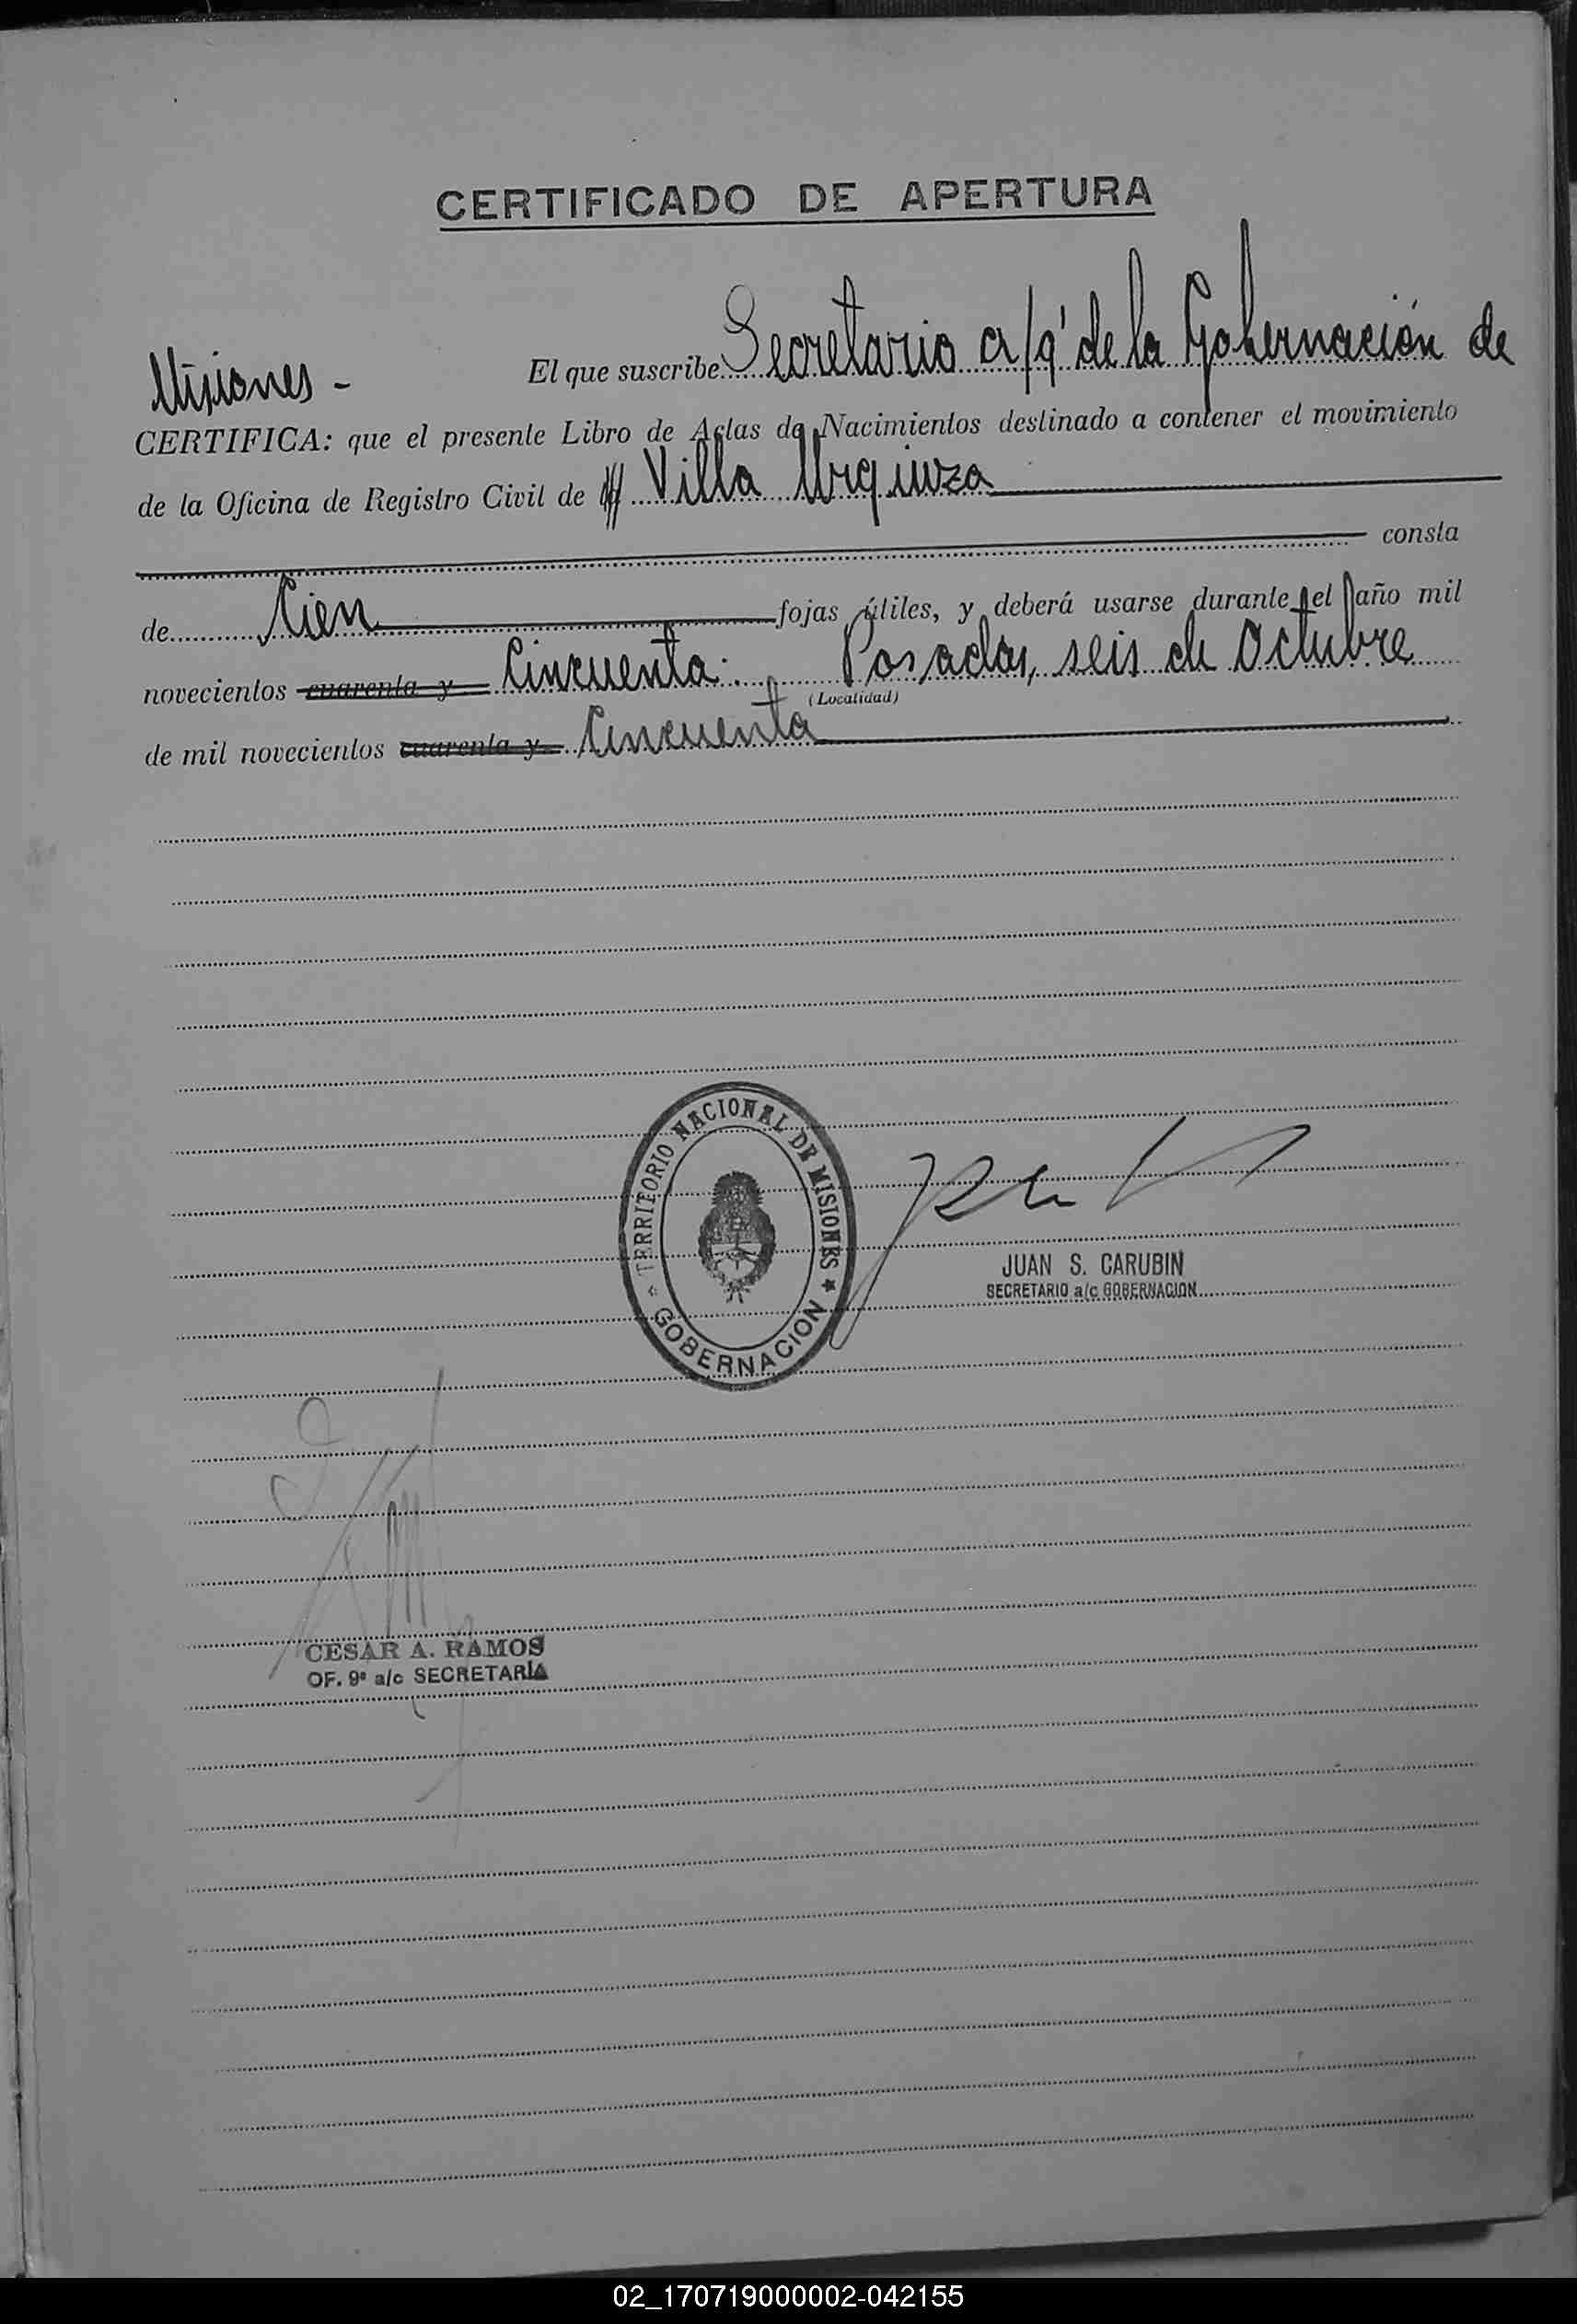 CERTIFICADO DE APERTURA
El que suscribe Secretario a/g' de la Gobernación de
Misiones -
CERTIFICA: que el presente Libro de Actas de Nacimientos destinado a contener el movimiento
de la Oficina de Registro Civil de Villa Urquiza
consta
de Cien fojas útiles, y deberá usarse durante el año mil
novecientos cuarenta y Cincuenta. Posadas, seis de Octubre
(Localidad)
de mil novecientos cuarenta y Cincuenta
TERRITORIO NACIONAL DE MISIONES
GOBERNACION
JUAN S. CARUBIN
SECRETARIO a/c GOBERNACION
CESAR A. RAMOS
OF. 9º a/c SECRETARÍA
02_170719000002-042155